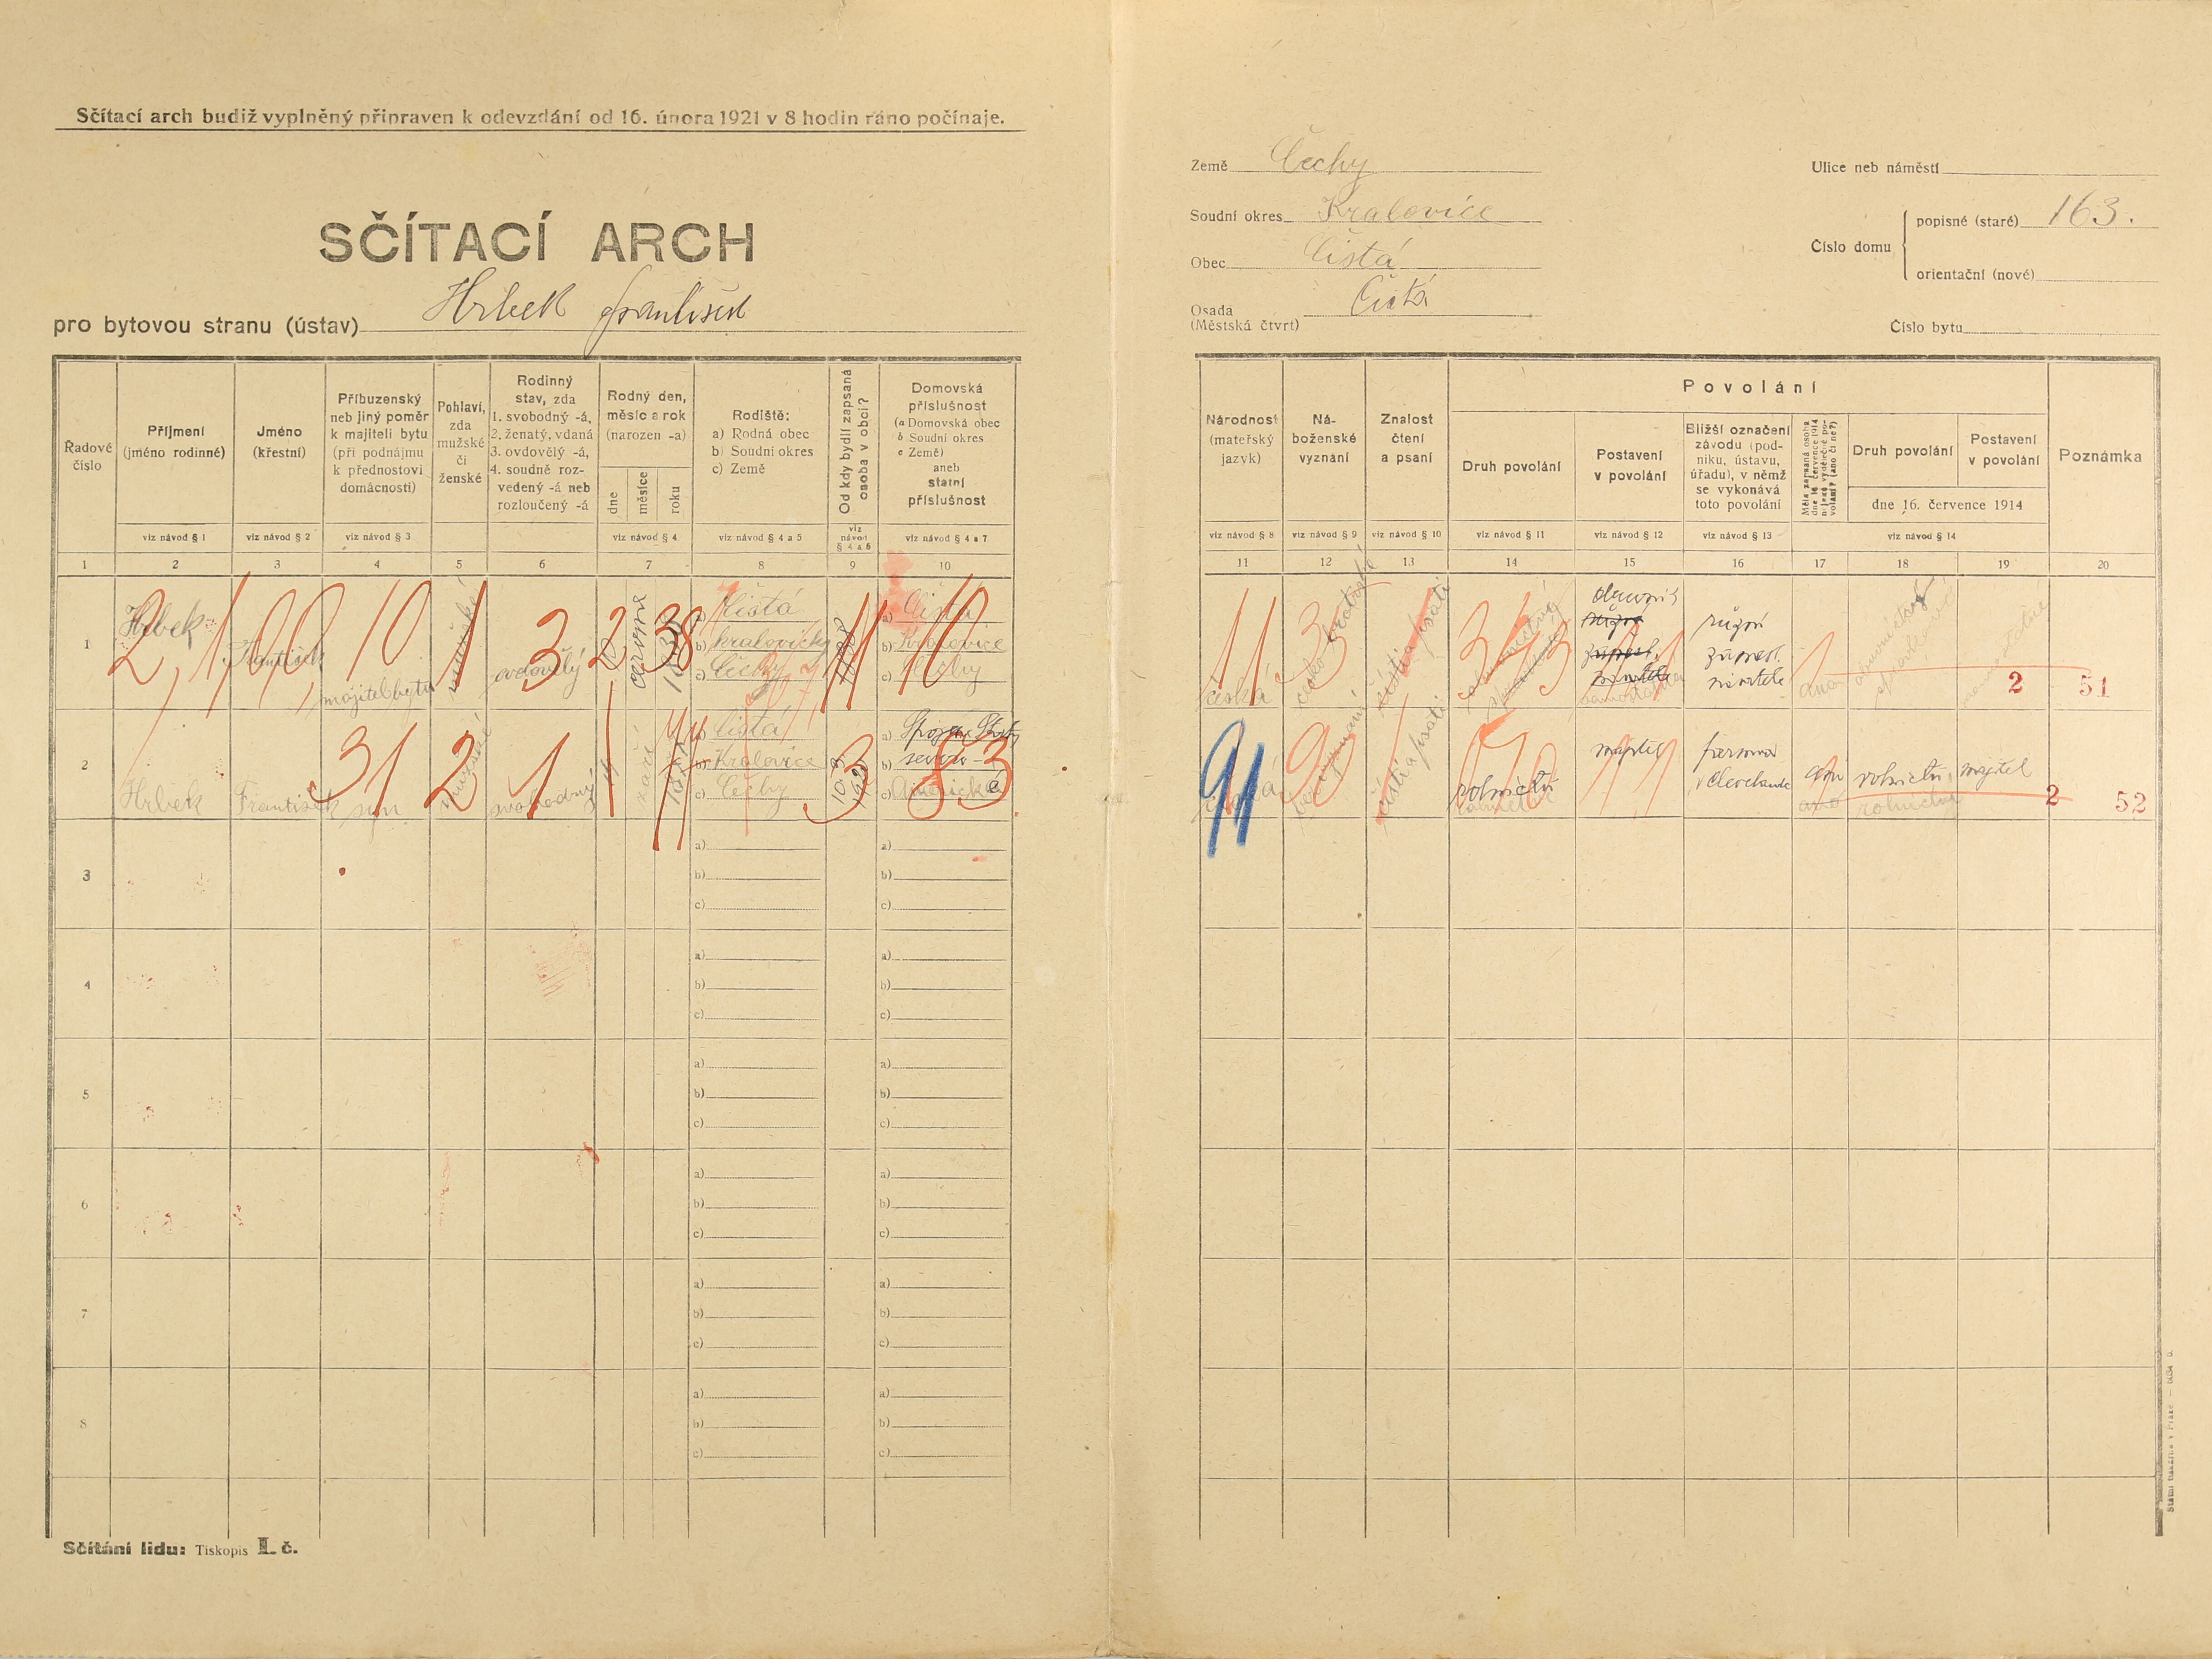 Sčítací arch budiž vyplněný připraven k odevzdání od 16. února 1921 v 8 hodin ráno počínaje.
SČÍTACÍ ARCH
pro bytovou stranu (ústav) Hrbek František
Země Čechy
Soudní okres Kralovice
Obec Čistá
Osada Čistá
(Městská čtvrť)
Ulice neb náměstí
Číslo domu
popisné (staré) 163.
orientační (nové)
Číslo bytu
Řadové číslo
Příjmení (jméno rodinné)
Jméno (křestní)
Příbuzenský neb jiný poměr k majiteli bytu (při podnájmu k přednostovi domácnosti)
Pohlaví, zda mužské či ženské
Rodinný stav, zda 1. svobodný -á, 2. ženatý, vdaná 3. ovdovělý -á, 4. soudně rozvedený -á neb rozloučený -á
Rodný den, měsíc a rok (narozen -a)
dne měsíce roku
Rodiště:
a) Rodná obec
b) Soudní okres
c) Země
Od kdy bydlí zapsaná osoba v obci?
Domovská příslušnost
(a Domovská obec
b Soudní okres
c Země)
aneb státní příslušnost
Národnost (mateřský jazyk)
Náboženské vyznání
Znalost čtení a psaní
Povolání
Druh povolání
Postavení v povolání
Bližší označení závodu (podniku, ústavu, úřadu), v němž se vykonává toto povolání
Měla zapsaná osoba dne 16. července 1914 nějaké výdělečné povolání? (ano či ne?)
Druh povolání
Postavení v povolání
dne 16. července 1914
Poznámka
viz návod § 1
viz návod § 2
viz návod § 3
viz návod § 4
viz návod § 4 a 5
viz návod § 4 a 6
viz návod § 4 a 7
viz návod § 8
viz návod § 9
viz návod § 10
viz návod § 11
viz návod § 12
viz návod § 13
viz návod § 14
1 2 3 4 5 6 7 8 9 10 11 12 13 14 15 16 17 18 19 20
1 Hrbek František majitel bytu mužské ovdovělý 2 června 1838
a) Čistá
b) Kralovice
c) Čechy
1838
a) Čistá
b) Kralovice
c) Čechy
česká
čísti a psáti
2 51
2 Hrbek František syn mužské svobodný září
a) Čistá
b) Kralovice
c) Čechy
a) Spojené Státy
b) severo-
c) Americké
čísti a psáti
rolnictví
majitel
farma v Clevelandu
ano
rolnictví
majitel
2 52
3
a)
b)
c)
4
a)
b)
c)
5
a)
b)
c)
6
a)
b)
c)
7
a)
b)
c)
8
a)
b)
c)
Sčítání lidu: Tiskopis I. č.